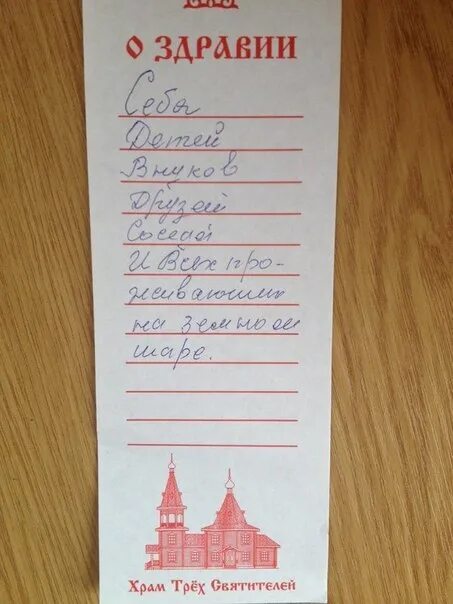 О ЗДРАВИИ
Себя
Детей
Внуков
Друзей
Соседа
И Всех про-
живающих
на земном
шаре.
Храм Трёх Святителей